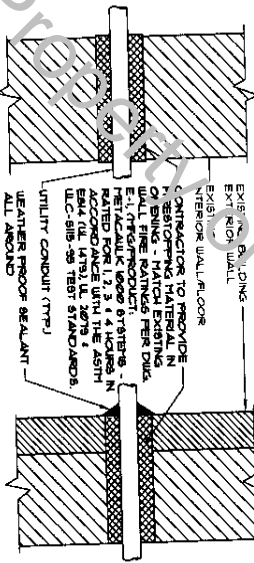 EXISTING BUILDING
EXTERIOR WALL
EXISTING
INTERIOR WALL/FLOOR
CONTRACTOR TO PROVIDE
FIRESTOPPING MATERIAL IN
OPENING - MATCH EXISTING
WALL FIRE RATINGS PER DWG.
E-1, (MFG/PRODUCT:
METACAULK 1000 SYSTEMS -
RATED FOR 1, 2, 3 & 4 HOURS IN
ACCORDANCE WITH THE ASTM
E814 (UL 1479), UL 2079 &
ULC-S115-95 TEST STANDARDS.
UTILITY CONDUIT (TYP.)
WEATHER PROOF SEALANT
ALL AROUND
property of